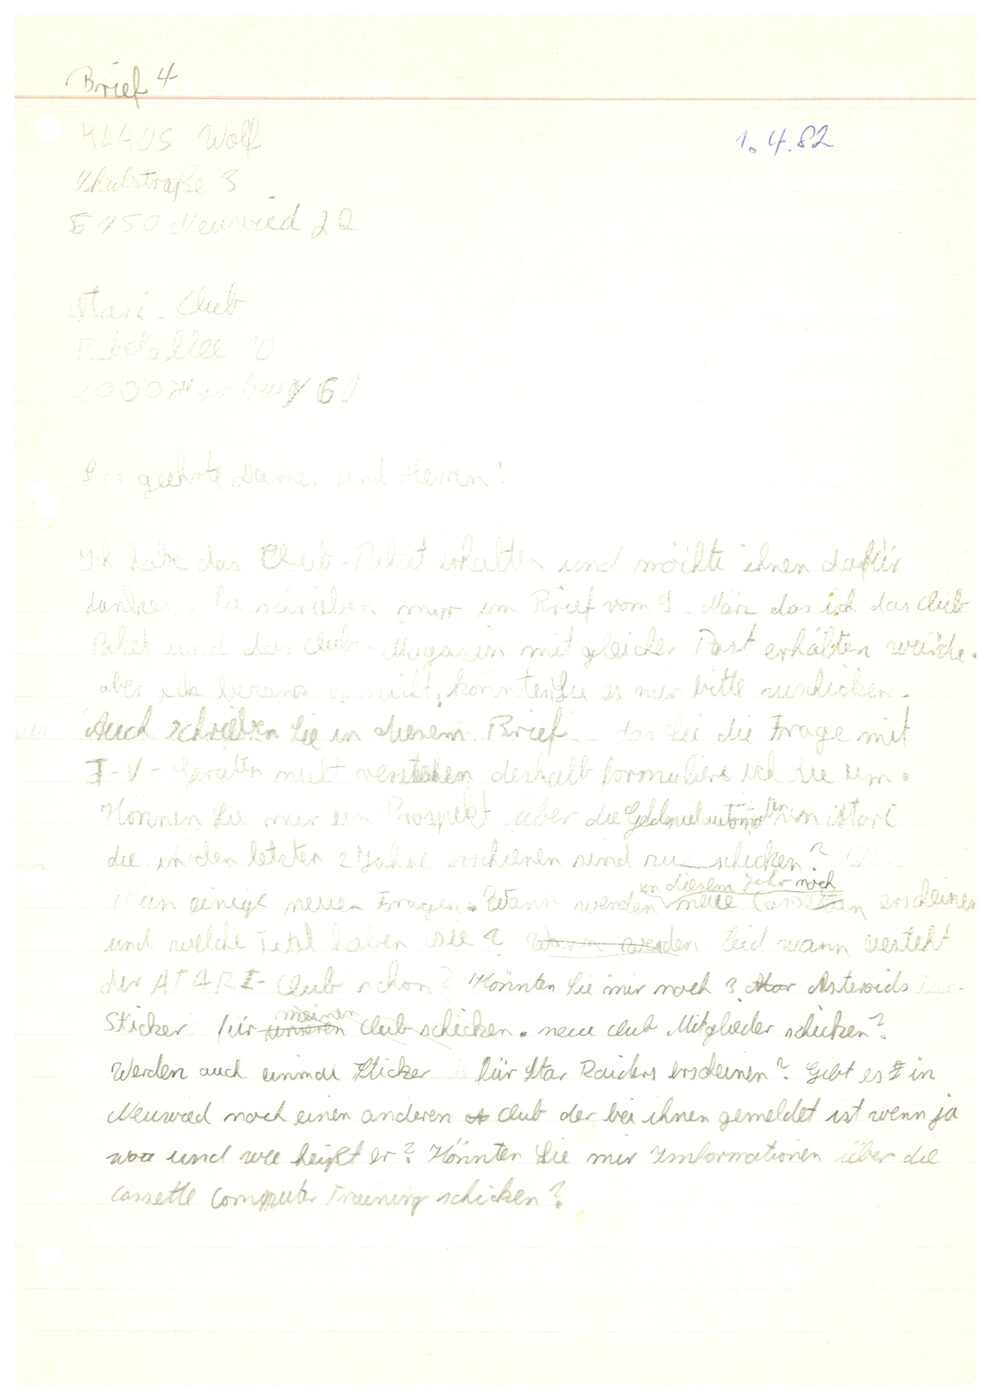 Brief 4
KLAUS Wolf
1.4.82
straße 3
5450 Neuwied 22
Atari-Club
10
2000 Hamburg 60
geehrte Damen und Herren!
Ich habe das Club-Paket erhalten und möchte ihnen dafür
danken. Sie schrieben mir im Brief vom 9. März das ich das Club
Paket und das Club-Magazin mit gleicher Post erhalten würde.
aber ich bekam es nicht, könnten Sie es mir bitte zuschicken.
Auch schrieben Sie in diesem Brief das Sie die Frage mit
T-V-Geräten nicht verstehen, deshalb formuliere ich sie um.
Können Sie mir ein Prospekt über die Geldspielautomaten von Atari
die in den letzten 2 Jahre erschienen sind zu schicken?
Nun einige neuen Fragen. Wann werden in diesem Jahr noch neue Cassetten erscheinen
und welche Titel haben sie? Wann werden Seid wann besteht
der ATARI-Club schon? Könnten Sie mir noch 3 Star Asteroids
Sticker für unseren meinen Club schicken. neue Club Mitglieder schicken?
Werden auch einmal Sticker für Star Raiders erscheinen? Gibt es in
Neuwied noch einen anderen Club der bei ihnen gemeldet ist wenn ja
wo und wie heißt er? Könnten Sie mir Informationen über die
Cassette Computer Training schicken?